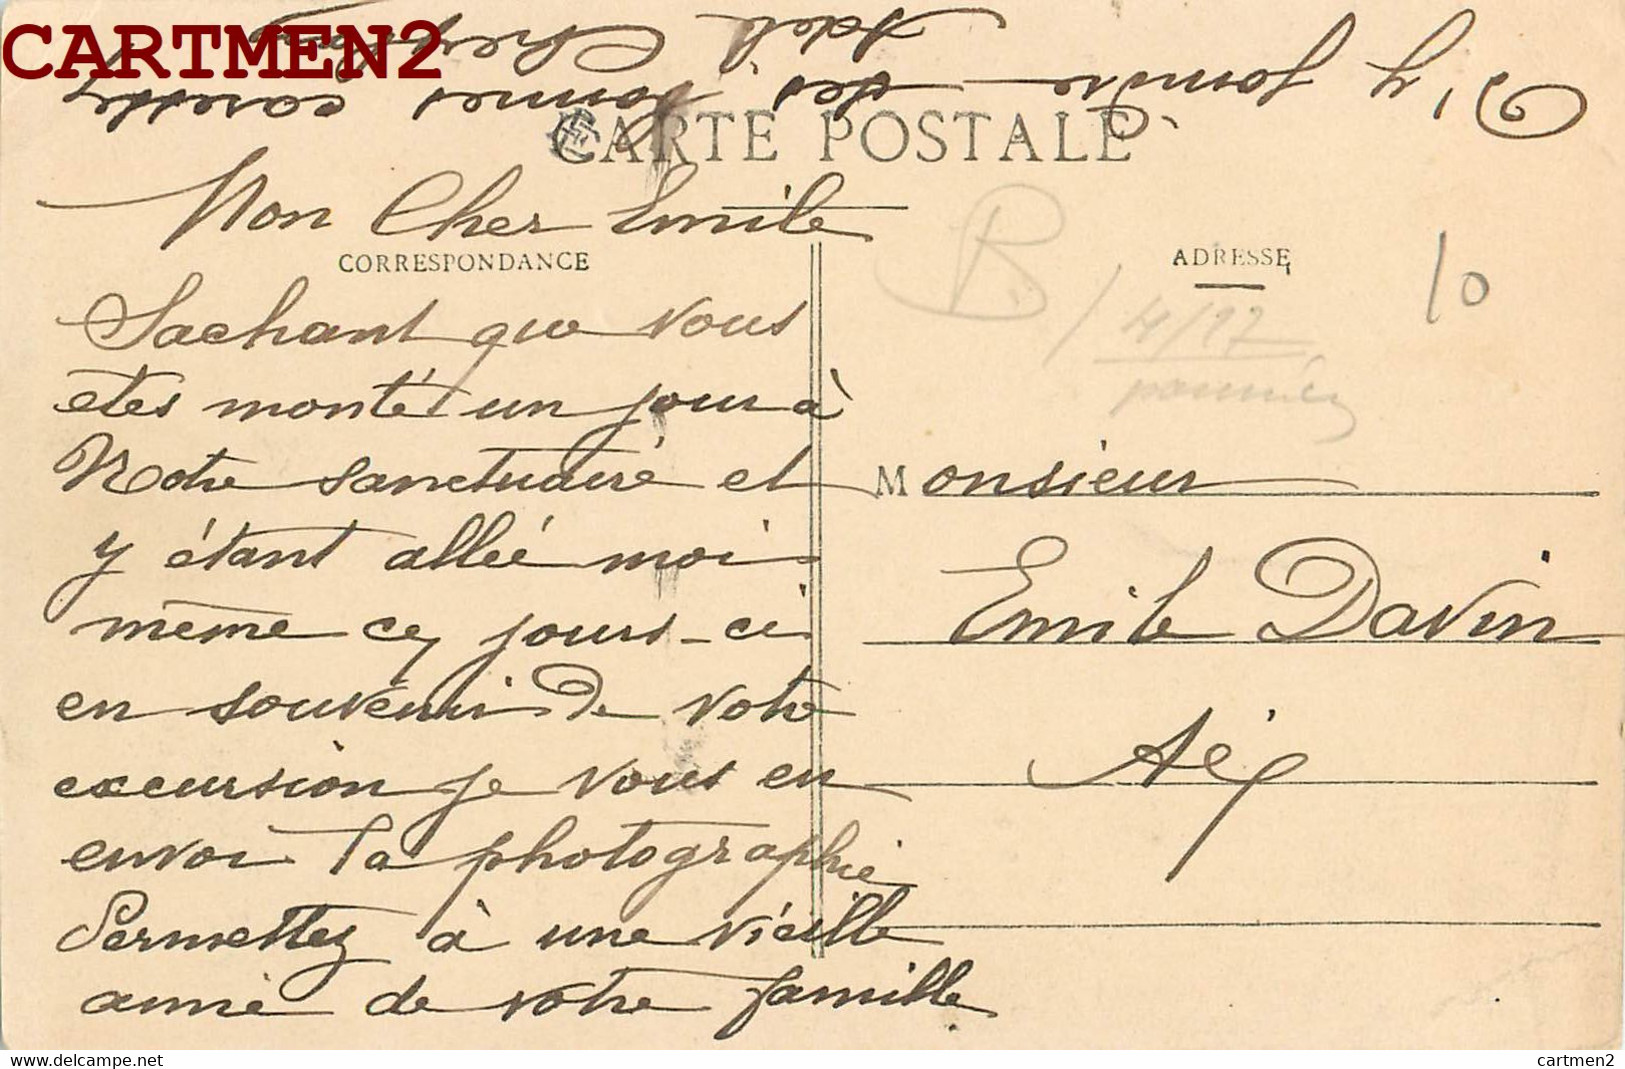 CARTMEN2
CARTE POSTALE
Mon Cher Emile
CORRESPONDANCE
Sachant que vous
etes monté un jour à
Notre sanctuaire et
y étant allée moi
même ces jours-ci
en souvenir de votre
excursion je vous en
envoi la photographie
Permettez à une vieille
amie de votre famille
D'y joindre des bonnes
Adèle
ADRESSE
10
B/
4/17
Monsieur
Emile Davin
Aix
cartmen2
cartmen2.delcampe.net